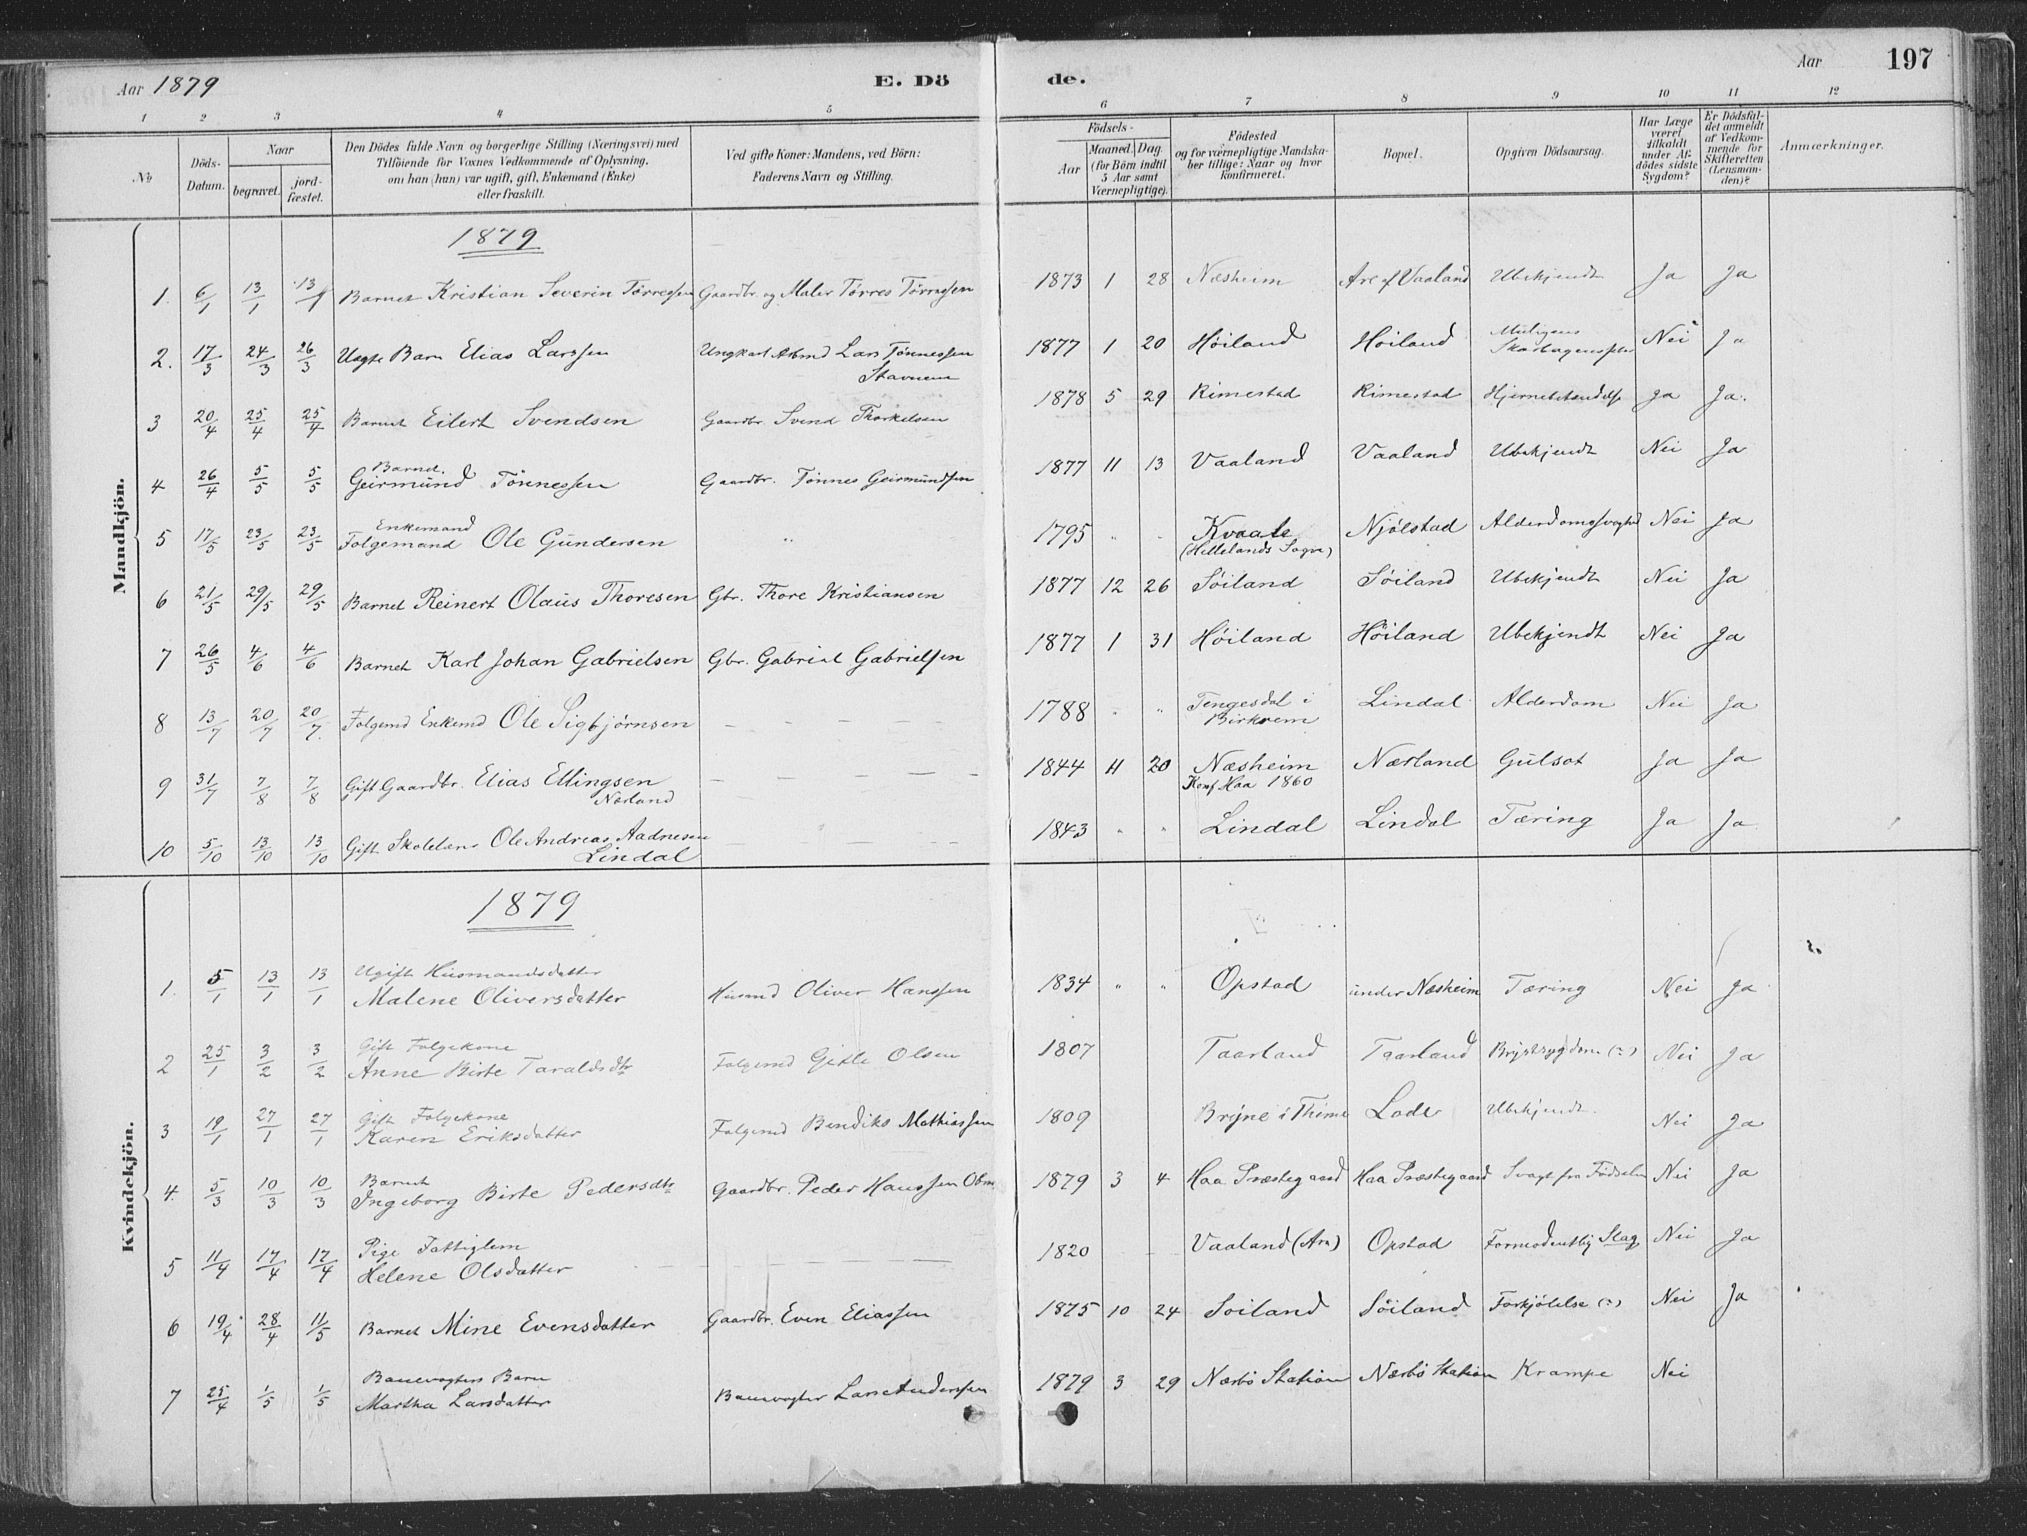 Aar 1879
E. Dö
de.
Aar
197
1 2 3 4 5 6 7 8 9 10 11 12
No
Döds-Datum.
Naar
begravet.
jord-fæstet.
Den Dödes fulde Navn og borgerlige Stilling (Næringsvei) med
Tilföiende for Voxnes Vedkommende af Oplysning,
om han (hun) var ugift, gift, Enkemand (Enke)
eller fraskilt.
Ved gifte Koner: Mandens, ved Börn:
Faderens Navn og Stilling.
Födsels-
Aar
Maaned.
Dag
(for Börn indtil
5 Aar samt
Værnepligtige).
Födested
og for værnepligtige Mandska-
ber tillige: Naar og hvor
konfirmeret.
Bopæl.
Opgiven Dödsaarsag.
Har Læge
været
tilkaldt
under Af-
dödes sidste
Sygdom?
Er Dödsfal-
det anmeldt
af Vedkom-
mende for
Skifteretten
(Lensman-
den)?
Anmærkninger.
Mandkjön.
1879
1. 6/1 13/1 13/1 Barnet Kristian Severin Tørressen Gaardbr. og Maler Tørres Tørressen 1873 1 28 Næsheim Are af Vaaland Ubekjendt Ja Ja
2. 17/3 24/3 26/3 Uægte Barn Elias Larssen Ungkarl Lars Tønnessen Stavnem 1877 1 20 Høiland Høiland Nei Ja
3 20/4 25/4 25/4 Barnet Eilert Svendsen Gaardbr. Svend Thorkelsen 1878 5 29 Rimestad Rimestad Hjernebetændelse Ja Ja.
4 26/4 5/5 5/5 Barnet Geirmund Tönnessen Gaardbr. Tönnes Geirmundsen 1877 11 13 Vaaland Vaaland Ubekjendt Nei Ja
5 17/5 23/5 23/5 Enkemand Folgemand Ole Gundersen " 1795 " - Kvaale (Hellelands Sogn) Njølstad Alderdomssvaghed Nei Ja
6 21/5 29/5 29/5 Barnet Reinert Olaus Thoresen Gbr. Thore Kristiansen 1877 12 26 Søiland Søiland Ubekjendt Nei Ja
7 26/5 4/6 4/6 Barnet Karl Johan Gabrielsen Gbr. Gabriel Gabrielsen 1877 1 31 Høiland Höiland Ubekjendt Nei Ja
8 13/7 20/7 20/7. Folgemd Enkemd Ole Sigbjørnsen - - - - 1788 " " Tengesdal i Birkrem Lindal Alderdom Nei Ja
9 31/7 7/8 7/8 Gift Gaardbr. Elias Ellingsen Nærland - - - - 1844 11 20 Næsheim Konf Haa 1860 Nærland Gulsot Ja Ja
10 5/10 13/10 13/10 Gift Skolelær Ole Andreas Aadnesen Lindal - - - - 1843 " " Lindal Lindal Tæring Ja Ja
Kvindekjön.
1879
1. 5/1 13/1 13/1 Ugift Husmandsdatter Malene Oliversdatter Husmd Oliver Hanssen 1834 " " Opstad under Næsheim Tæring Nei Ja
2 25/1 3/2 3/2 Gift Folgekone Anne Birte Taraldsdtr Folgemd Gitle Olsen 1807 Taarland Taarland Brystsygdom (?) Nei Ja
3 19/1 27/1 27/1 Gift Folgekone Karen Eriksdatter Folgemd Bendiks Mathiassen 1809 Bryne i Thime Lode Ubekjendt. Nei Ja
4. 5/3 10/3 10/3 Barnet Ingeborg Birte Pedersdtr Gaardbr. Peder Hanssen 1879 3 4 Haa Præstegaard Haa Præstegaard Svagt fra Fødselen Nei Ja
5 11/4 17/4 17/4 Pige Fattiglem Helene Olsdatter - - - - 1820 - - Vaaland (Are) Opstad Formodentlig Slag Nei Ja
6 19/4 28/4 11/5 Barnet Mine Evensdatter Gaardbr. Even Eliassen 1875 10 24 Soiland Söiland Forkjölelse (?) Nei Ja
7 25/4 1/5 1/5 Banevogters Barn Martha Larsdatter Banevogter Lars Anderssen 1879 3 29 Nærbö Station Nærbö Station Krampe Nei